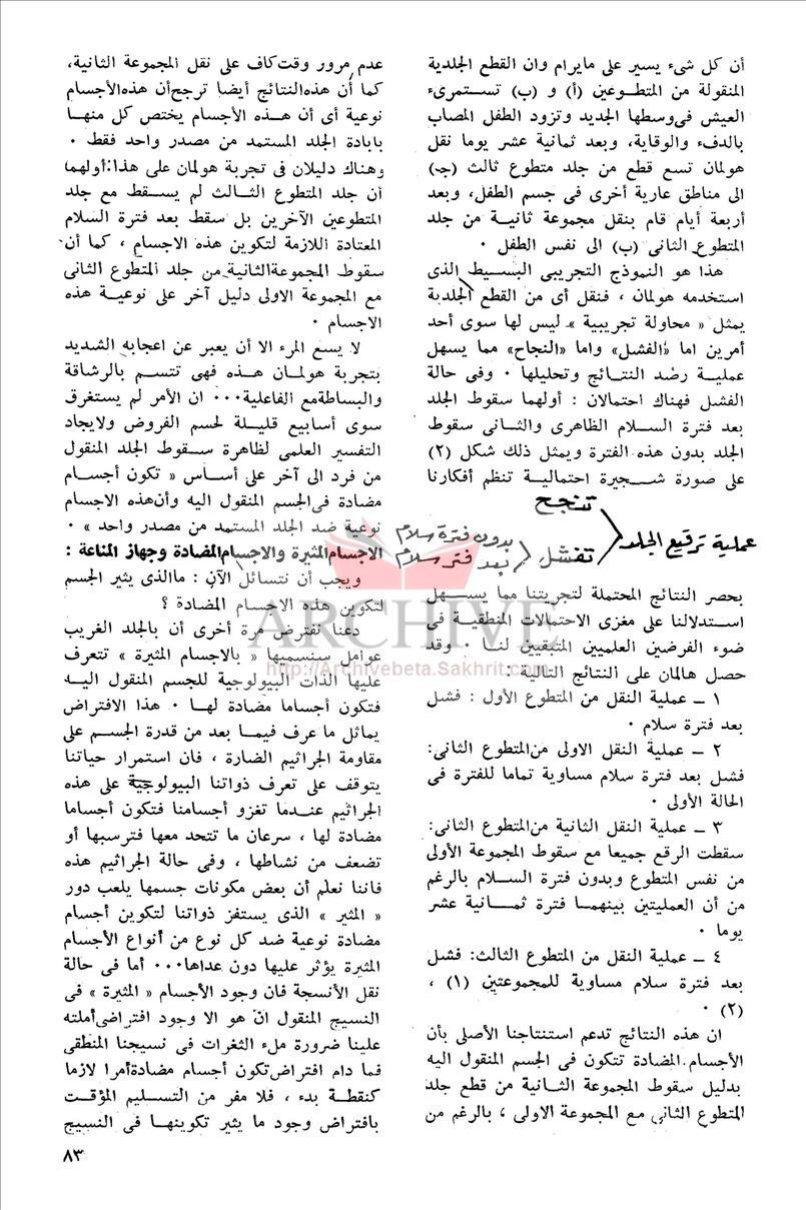 أن كل شىء يسير على مايرام وان القطع الجلدية
المنقولة من المتطوعين (أ) و (ب) تستمرىء
العيش فى وسطها الجديد وتزود الطفل المصاب
بالدفء والوقاية، وبعد ثمانية عشر يوما نقل
هولمان تسع قطع من جلد متطوع ثالث (جـ)
الى مناطق عارية أخرى فى جسم الطفل، وبعد
أربعة أيام قام بنقل مجموعة ثانية من جلد
المتطوع الثانى (ب) الى نفس الطفل ٠
هذا هو النموذج التجريبى البسيط الذى
استخدمه هولمان ، فنقل أى من القطع الجلدية
يمثل « محاولة تجريبية » ليس لها سوى أحد
أمرين اما «الفشل» واما «النجاح» مما يسهل
عملية رصد النتائج وتحليلها ٠ وفى حالة
الفشل فهناك احتمالان : أولهما سقوط الجلد
بعد فترة السلام الظاهرى والثانى سقوط
الجلد بدون هذه الفترة ويمثل ذلك شكل (٢)
على صورة شجيرة احتمالية تنظم أفكارنا
تنجح
عملية ترقيع الجلد
تفشل
بدون فترة سلام
بعد فتر سلام
بحصر النتائج المحتملة لتجربتنا مما يسهل
استدلالنا على مغزى الاحتمالات المنطقية فى
ضوء الفرضين العلميين المتبقيين لنا ٠ وقد
حصل هالمان على النتائج التالية :
١ ــ عملية النقل من المتطوع الأول : فشل
بعد فترة سلام ٠
٢ ــ عملية النقل الاولى من المتطوع الثانى:
فشل بعد فترة سلام مساوية تماما للفترة فى
الحالة الأولى ٠
٣ ــ عملية النقل الثانية من المتطوع الثانى:
سقطت الرقع جميعا مع سقوط المجموعة الأولى
من نفس المتطوع وبدون فترة السلام بالرغم
من أن العمليتين بينهما فترة ثمانية عشر
يوما ٠
٤ ــ عملية النقل من المتطوع الثالث: فشل
بعد فترة سلام مساوية للمجموعتين (١) ،
(٢) ٠
ان هذه النتائج تدعم استنتاجنا الأصلى بأن
الأجسام المضادة تتكون فى الجسم المنقول اليه
بدليل سقوط المجموعة الثانية من قطع جلد
المتطوع الثانى مع المجموعة الاولى ، بالرغم من
عدم مرور وقت كاف على نقل المجموعة الثانية،
كما أن هذه النتائج أيضا ترجح أن هذه الأجسام
نوعية أى أن هذه الأجسام يختص كل منها
بابادة الجلد المستمد من مصدر واحد فقط ٠
وهناك دليلان فى تجربة هولمان على هذا: أولهما
أن جلد المتطوع الثالث لم يسقط مع جلد
المتطوعين الآخرين بل سقط بعد فترة السلام
المعتادة اللازمة لتكوين هذه الاجسام ، كما أن
سقوط المجموعة الثانية من جلد المتطوع الثانى
مع المجموعة الاولى دليل آخر على نوعية هذه
الاجسام ٠
لا يسع المرء الا أن يعبر عن اعجابه الشديد
بتجربة هولمان هذه فهى تتسم بالرشاقة
والبساطة مع الفاعلية٠٠٠ ان الأمر لم يستغرق
سوى أسابيع قليلة لحسم الفروض ولايجاد
التفسير العلمى لظاهرة سقوط الجلد المنقول
من فرد الى آخر على أساس « تكون أجسام
مضادة فى الجسم المنقول اليه وأن هذه الاجسام
نوعية ضد الجلد المستمد من مصدر واحد » ٠
الاجسام المثيرة والاجسام المضادة وجهاز المناعة :
ويجب أن نتسائل الآن : ما الذى يثير الجسم
لتكوين هذه الاجسام المضادة ؟
دعنا نفترض مرة أخرى أن بالجلد الغريب
عوامل سنسميها « بالاجسام المثيرة » تتعرف
عليها الذات البيولوجية للجسم المنقول اليه
فتكون أجساما مضادة لها ٠ هذا الافتراض
يماثل ما عرف فيما بعد من قدرة الجسم على
مقاومة الجراثيم الضارة ، فان استمرار حياتنا
يتوقف على تعرف ذواتنا البيولوجية على هذه
الجراثيم عندما تغزو أجسامنا فتكون أجساما
مضادة لها ، سرعان ما تتحد معها فترسبها أو
تضعف من نشاطها ، وفى حالة الجراثيم هذه
فاننا نعلم أن بعض مكونات جسمها يلعب دور
« المثير » الذى يستفز ذواتنا لتكوين أجسام
مضادة نوعية ضد كل نوع من أنواع الأجسام
المثيرة يؤثر عليها دون عداها٠٠٠ أما فى حالة
نقل الأنسجة فان وجود الأجسام « المثيرة » فى
النسيج المنقول ان هو الا وجود افتراضى أملته
علينا ضرورة ملء الثغرات فى نسيجنا المنطقى
فما دام افتراض تكون أجسام مضادة أمرا لازما
كنقطة بدء ، فلا مفر من التسليم المؤقت
بافتراض وجود ما يثير تكوينها فى النسيج
٨٣
ARCHIVE
http://Archivebeta.Sakhrit.com